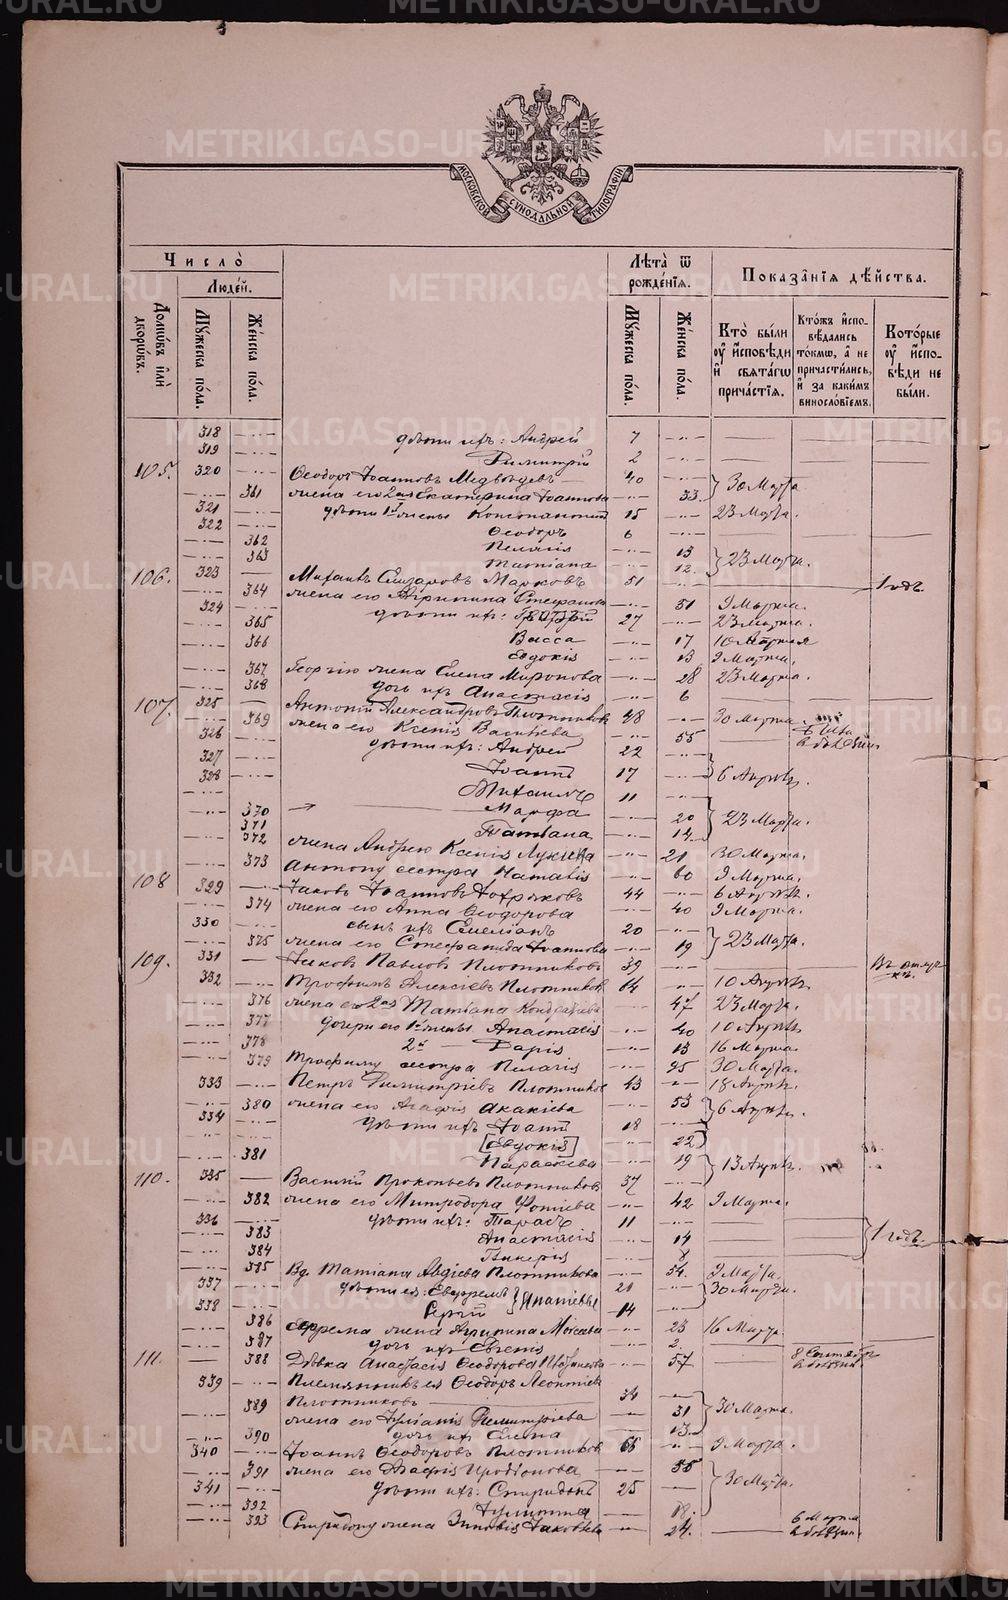 METRIKI.GASO-URAL.RU
МОСКОВСКОЙ СУНОДАЛЬНОЙ ТИПОГРАФІИ
Число̀
Людей.
Домѡвъ или дворѡвъ.
Мꙋжеска пола.
Женска пола.
Лѣта ѿ рожденїѧ.
Мꙋжеска пола.
Женска пола.
Показанїѧ дѣйства.
Кто были ꙋ исповѣди и свѧтагѡ причастїѧ.
Ктожъ исповѣдались токмѡ, а не причастились, и за какимъ винословїемъ.
Которые ꙋ исповѣди не были.
318 дѣти ихъ: Андрей 7
319 Димитрій 2
105. 320 Ѳеодоръ Іоанновъ Медвѣдевъ 40
361 жена его 2ая Екатерина Іоаннова 33. 30 Марта
321 дѣти 1й жены Константинъ 15 23 Марта.
322 Ѳеодоръ 6
362 Пелагія 13
363 Татіана 12. 23 Марта.
106. 323 Михаилъ Елизаровъ Марковъ 51 1 годъ
364 жена его Агрипина Стефанова 51 9 Марта.
324 дѣти ихъ: Георгій 27 23 Марта.
365 Васса 17 10 Апрѣля
366 Евдокія 13 9 Марта.
367 Георгію жена Елена Миронова 28 23 Марта.
368 дочь ихъ Анастасія 6
107. 325 Антоній Александровъ Плотниковъ 48 30 Марта.
369 жена его Ксенія Васильева 55
326 дѣти ихъ: Андрей 22
327 Іоаннъ 17 6 Апрѣля.
328 Михаилъ 11
370 Марфа 20 23 Марта.
371 Татіана 14.
372 жена Андрею Ксенія Лукіева 21 30 Марта.
373 Антону сестра Наталія 60 9 Марта.
108 329 Іаковъ Іоанновъ 44 6 Апрѣля.
374 жена его Анна Ѳеодорова 40 9 Марта.
330 сынъ ихъ Емеліанъ 20
375 жена его Стефанида Іоаннова 19 23 Марта.
109. 331 Іаковъ Павловъ Плотниковъ 39
332 Трофимъ Алексіевъ Плотников 64 10 Апрѣля.
376 жена его 2ая Татіана 47 23 Марта.
377 дочери его 1й жены Анастасія 40 10 Апрѣля
378 2й Дарія 13 16 Марта.
379 Трофиму сестра Пелагія 30 Марта.
333 Петръ Димитріевъ Плотников 43 18 Апрѣля.
380 жена его Агафія Акакіева 53 6 Апрѣля.
334 дѣти ихъ Іоаннъ 18
[Евдокія] 22
381 Параскева 19 13 Апрѣля.
110. 335 Василій Прокопьевъ Плотниковъ 37
382 жена его Митродора Фотіева 42 9 Марта.
336 дѣти ихъ: Тарасъ 11
383 Анастасія 14 1 годъ.
384 Гликерія 8
385 Вд. Татіана Авдіева Плотникова 54. 9 Марта.
337 дѣти ея: Евфремъ 21 30 Марта.
338 Сергій 14
386 Ефрема жена Агрипина Моѵсеева 23 16 Марта
387 дочь ихъ Евгенія 2.
111. 388 Дѣвка Анастасія Ѳеодорова 57.
339 Племянникъ ея Ѳеодоръ Леонтіевъ
Плотниковъ 34
389 жена его Іуліанія Димитріева 31 30 Марта.
390 дочь ихъ Елена 13.
340 Іоаннъ Ѳеодоровъ Плотниковъ 66 9 Марта.
391 жена его Агафія Иродіонова 55
341 дѣти ихъ: Спиридонъ 25 30 Марта.
392 18.
393 Спиридону жена Зиновія Іаковлева 24.